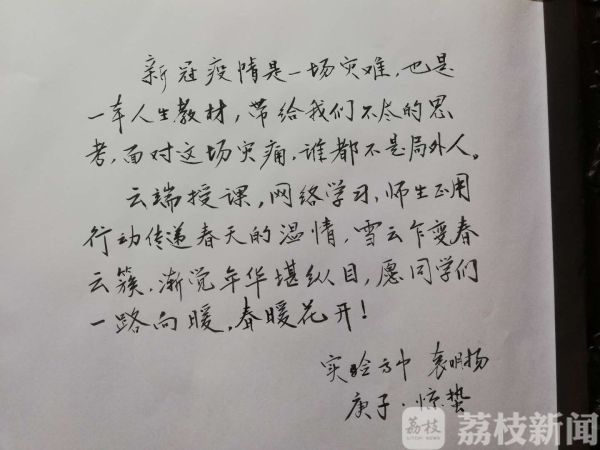 新冠疫情是一场灾难，也是
一本人生教材，带给我们不尽的思
考，面对这场灾痛，谁都不是局外人。
云端授课，网络学习，师生正用
行动传递春天的温情，雪云乍变春
云簇，渐觉年华堪纵目，愿同学们
一路向暖，春暖花开！
实验高中 袁明扬
庚子·惊蛰
荔枝
LITCHI NEWS
荔枝新闻